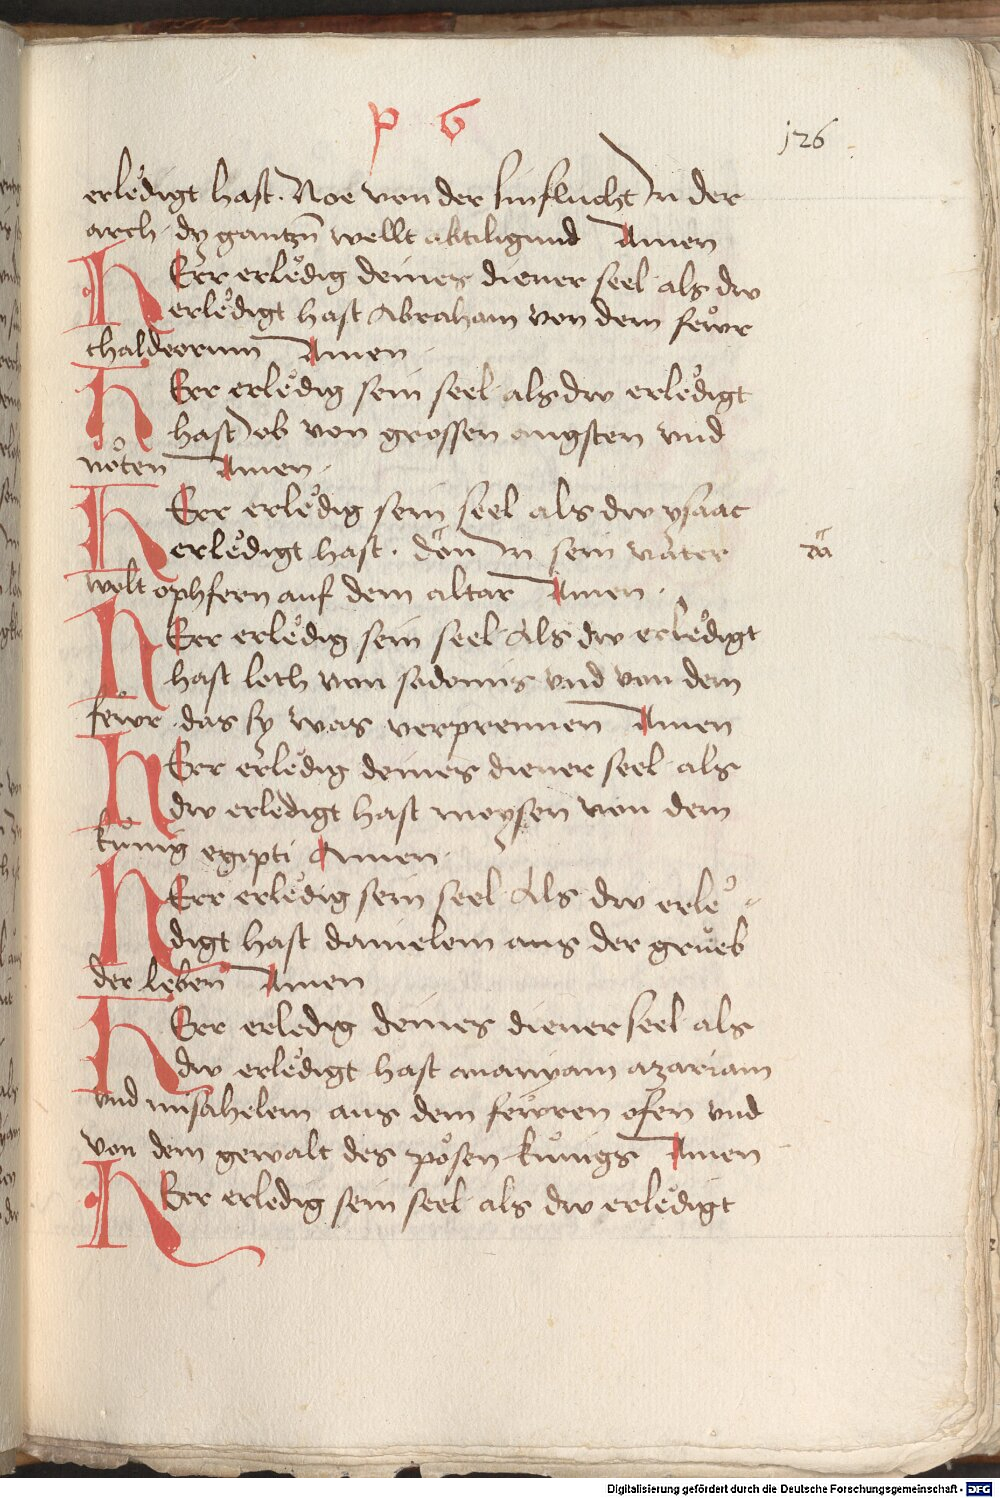 p 6
126
erledigt hast. Noe von der sinflucht In der
arch dy gantzn wellt abtiligund Amen
HErr erledig deines diener seel als dw
erledigt hast Abraham von dem fewr
chaldeorum Amen.
HErr erledig sein seel als dw erledigt
hast Job von grossen angsten vnd
nöten Amen.
HErr erledig sein seel als dw ysaac
erledigt hast. den In sein vater
wolt ophfern auf dem altar Amen.
HErr erledig sein seel Als dw erledigt
hast loth von sodomis vnd von dem
fewr das sy was verprennen Amen
HErr erledig deines diener seel als
dw erledigt hast moysen von dem
künig egipti Amen.
HErr erledig sein seel Als dw erle-
digt hast danielem aus der grueb
der leben Amen
HErr erledig deines diener seel als
dw erledigt hast ananyam azariam
vnd misahelem aus dem fewren ofen vnd
von dem gewalt des pösen künigs Amen
HErr erledig sein seel als dw erledigt
Digitalisierung gefördert durch die Deutsche Forschungsgemeinschaft - DFG